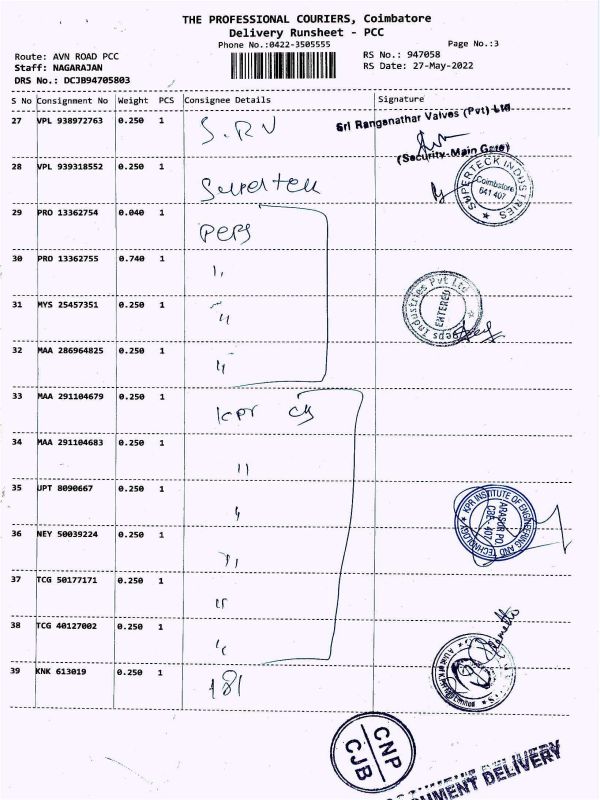 THE PROFESSIONAL COURIERS, Coimbatore
Delivery Runsheet - PCC
Phone No.:0422-3505555
Page No.:3
Route: AVN ROAD PCC
RS No.: 947058
Staff: NAGARAJAN
RS Date: 27-May-2022
DRS No.: DCJB94705803
S No Consignment No Weight PCS Consignee Details Signature
27 VPL 938972763 0.250 1 S.RV
Sri Ranganathar Valves (Pvt) Ltd
(Security-Main Gate)
28 VPL 939318552 0.250 1
SUPERTECK INDUSTRIES
Coimbatore
641 407
29 PRO 13362754 0.040 1 PEPS
30 PRO 13362755 0.740 1 "
31 MYS 25457351 0.250 1 "
Peps Industries Pvt Ltd
ENTERED
32 MAA 286964825 0.250 1 "
33 MAA 291104679 0.250 1 KPr
34 MAA 291104683 0.250 1 "
35 UPT 8090667 0.250 1 "
KPR INSTITUTE OF ENGINEERING AND TECHNOLOGY
ARASUR PO,
CBE - 407
36 NEY 50039224 0.250 1 "
37 TCG 50177171 0.250 1 "
38 TCG 40127002 0.250 1 "
39 KNK 613019 0.250 1
CNP
CJB
DOCUMENT DELIVERY